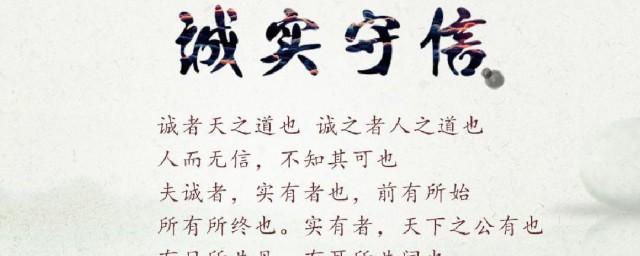 誠实守信
诚者天之道也 诚之者人之道也
人而无信，不知其可也
夫诚者，实有者也，前有所始
所有所终也。实有者，天下之公有也